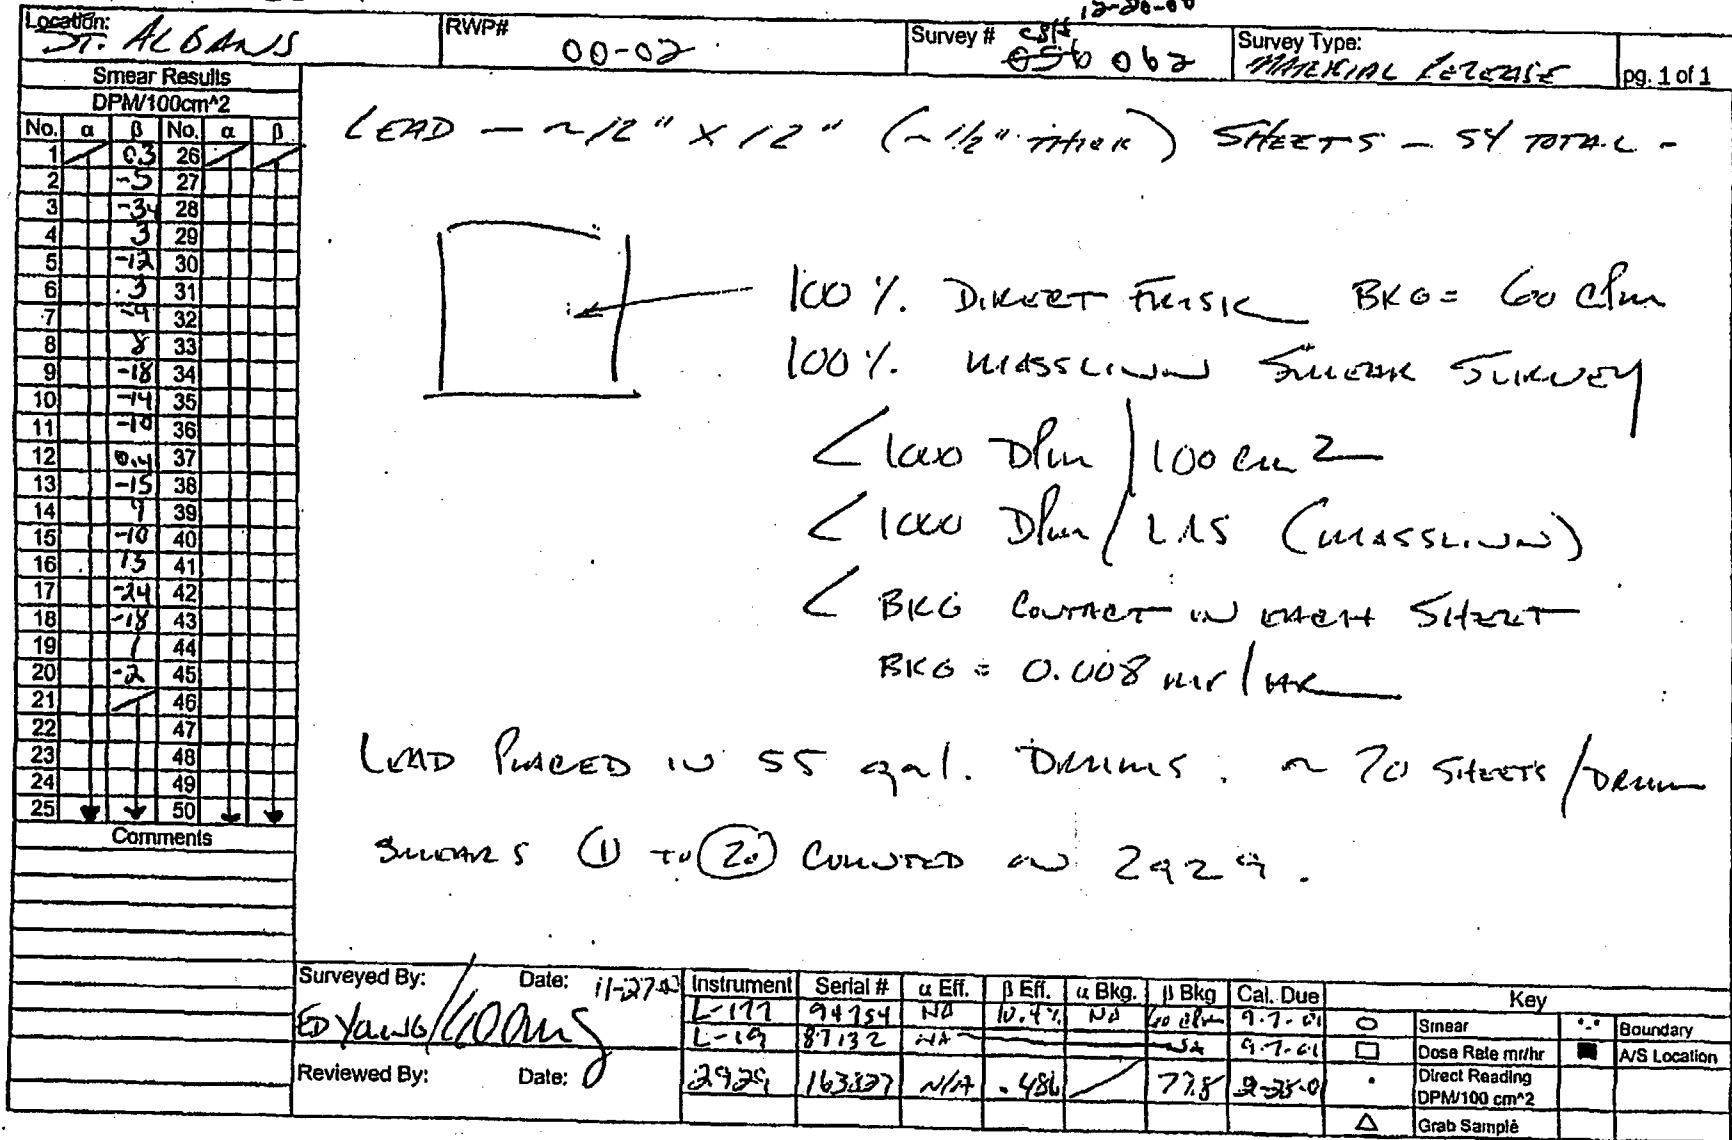 12-20-00
Location: ST. ALBANS RWP# 00-02 Survey # 056 062 Survey Type: MATERIAL RELEASE pg. 1 of 1
Smear Results
DPM/100cm^2
No. α β No. α β
1 0.3 26
2 -5 27
3 -34 28
4 3 29
5 -12 30
6 3 31
7 -9 32
8 8 33
9 -18 34
10 -14 35
11 -10 36
12 0.4 37
13 -15 38
14 9 39
15 -10 40
16 13 41
17 -24 42
18 -18 43
19 1 44
20 -2 45
21 46
22 47
23 48
24 49
25 50
Comments
LEAD - ~12" X 12" (~1/2" THICK) SHEETS - 54 TOTAL -
100 %. DIRECT FRISK BKG = 60 CPM
100 %. MASSLINN SMEAR SURVEY
< 1000 DPM / 100 cm 2
< 1000 DPM / LAS (MASSLINN)
< BKG CONTACT ON EACH SHEET
BKG = 0.008 mr / HR
LEAD PLACED IN 55 gal. DRUMS. ~ 20 SHEETS / DRUM
SMEARS 1 TO 20 COUNTED ON 2929.
Surveyed By: Date: 11-27-00
ED YOUNG /
Reviewed By: Date:
Instrument Serial # α Eff. β Eff. α Bkg. β Bkg Cal. Due
L-177 94754 NA 10.4% NA 60 CPM 9-7-01
L-19 87132 NA NA 9-7-01
2929 163827 N/A .486 77.8
Key
Smear Boundary
Dose Rate mr/hr A/S Location
Direct Reading
DPM/100 cm^2
Grab Sample